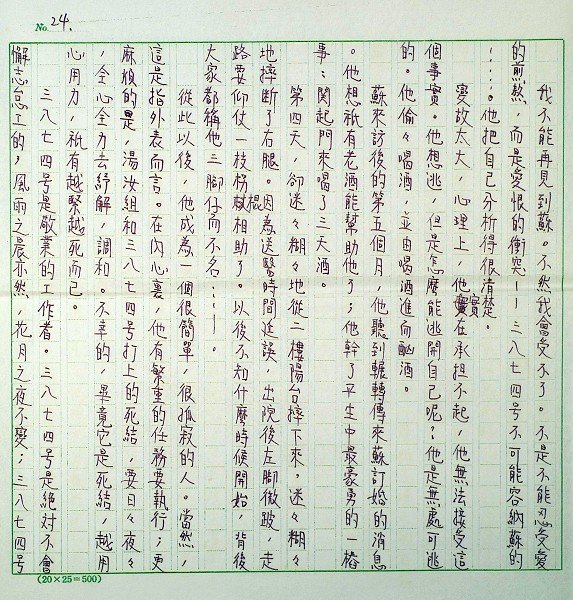 No. 24.
我不能再見到蘇。不然我會受不了。不是不能忍受愛
的煎熬，而是愛恨的衝突——三八七四号不可能容納蘇的
……。他把自己分析得很清楚。
變故太大，心理上，他實在承担不起，他無法接受這
個事實。他想逃，但是怎麼能逃開自己呢？他是無處可逃
的。他偷々喝酒，並由喝酒進而酗酒。
蘇來訪後的第五個月，他聽到輾轉傳來蘇訂婚的消息
。他想祇有老酒能幫助他了；他幹了平生中最豪勇的一樁
事：関起門來喝了三天酒。
第四天，卻迷々糊々地從二樓陽台摔下來，迷々糊々
地摔断了右腿。因為送醫時間延誤，出院後左脚微跛，走
路要仰仗一枝柺棍相助了。以後不知什麼時候開始，背後
大家都稱他三脚仔而不名……。
從此以後，他成為一個很簡單，很孤寂的人。當然，
這是指外表而言。在內心裏，他有繁重的任務要執行；更
麻煩的是，湯汝組和三八七四号打上的死結，要日々夜々
，全心全力去紓解，調和。不幸的，畢竟它是死結，越用
心用力，祇有越緊越死而已。
三八七四号是敬業的工作者。三八七四号是絕对不會
懈志怠工的，風雨之晨亦然，花月之夜不變；三八七四号
(20×25=500)